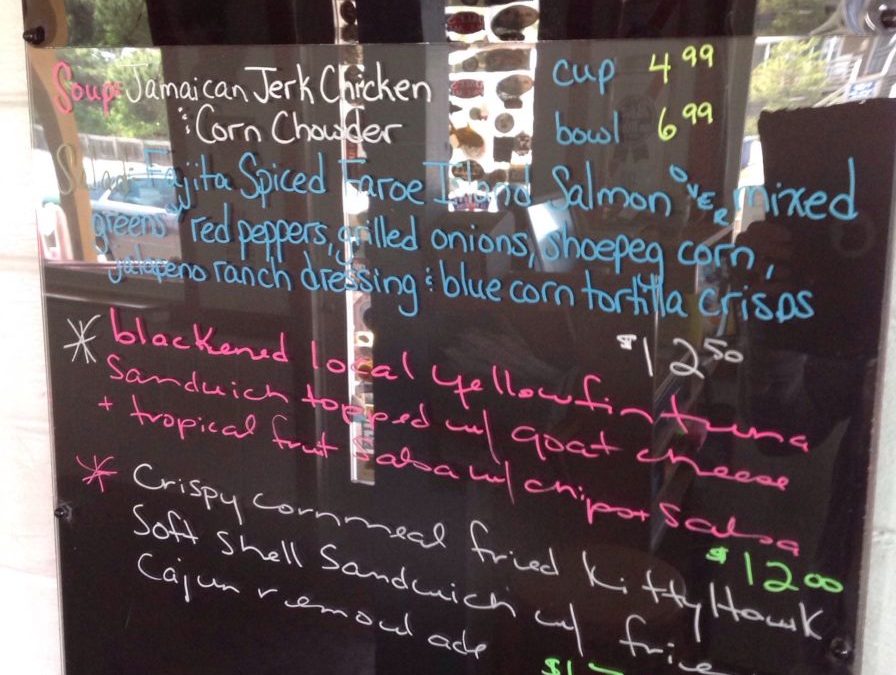 Soup: Jamaican Jerk Chicken cup 4.99
& Corn Chowder bowl 6.99
Salad: Fajita Spiced Faroe Island Salmon over mixed
greens w/ red peppers, grilled onions, shoepeg corn,
jalapeno ranch dressing & blue corn tortilla crisps
$12.50
* blackened local yellowfin tuna
Sandwich topped w/ goat cheese
+ tropical fruit Salsa w/ chips + Salsa
$12.00
* Crispy cornmeal fried Kitty Hawk
Soft Shell Sandwich w/ fries
Cajun remoulade